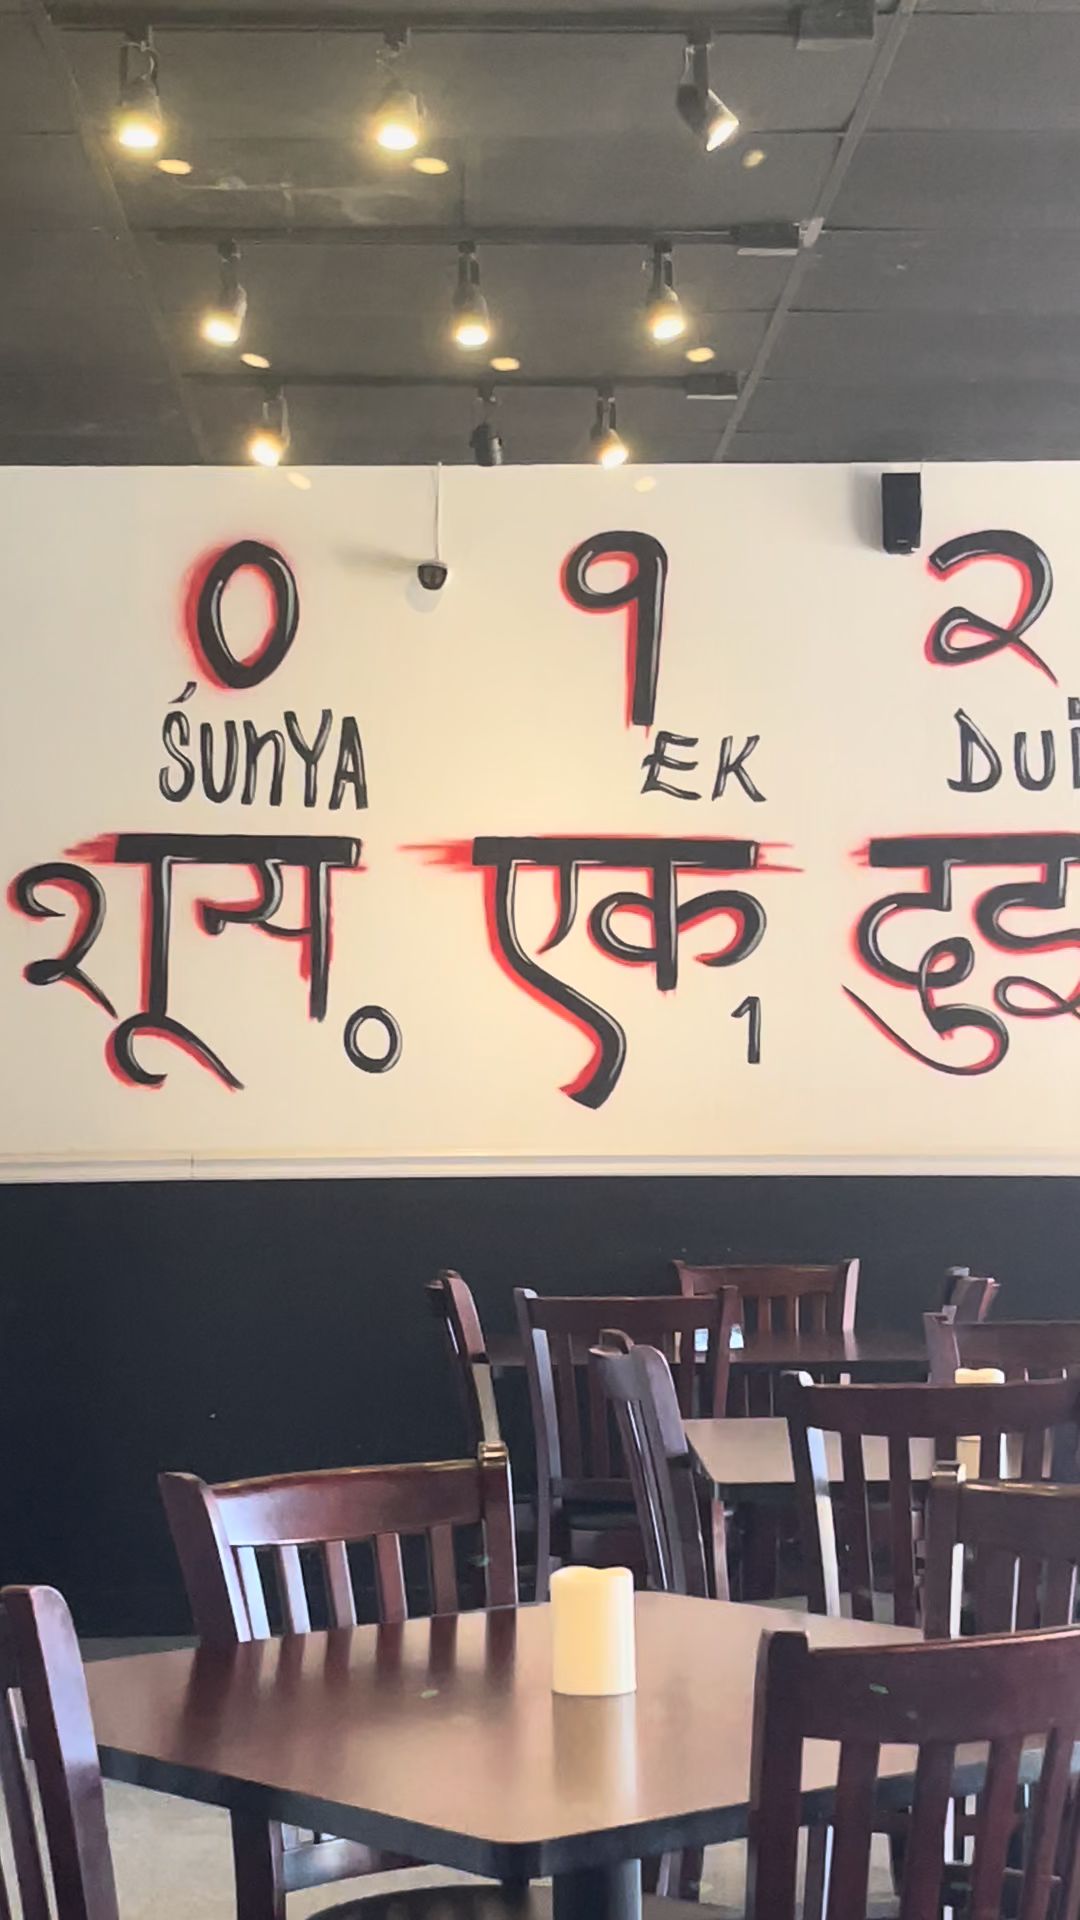 ० १ २
ŚUNYA EK DUI
शून्य एक दुइ
0 1